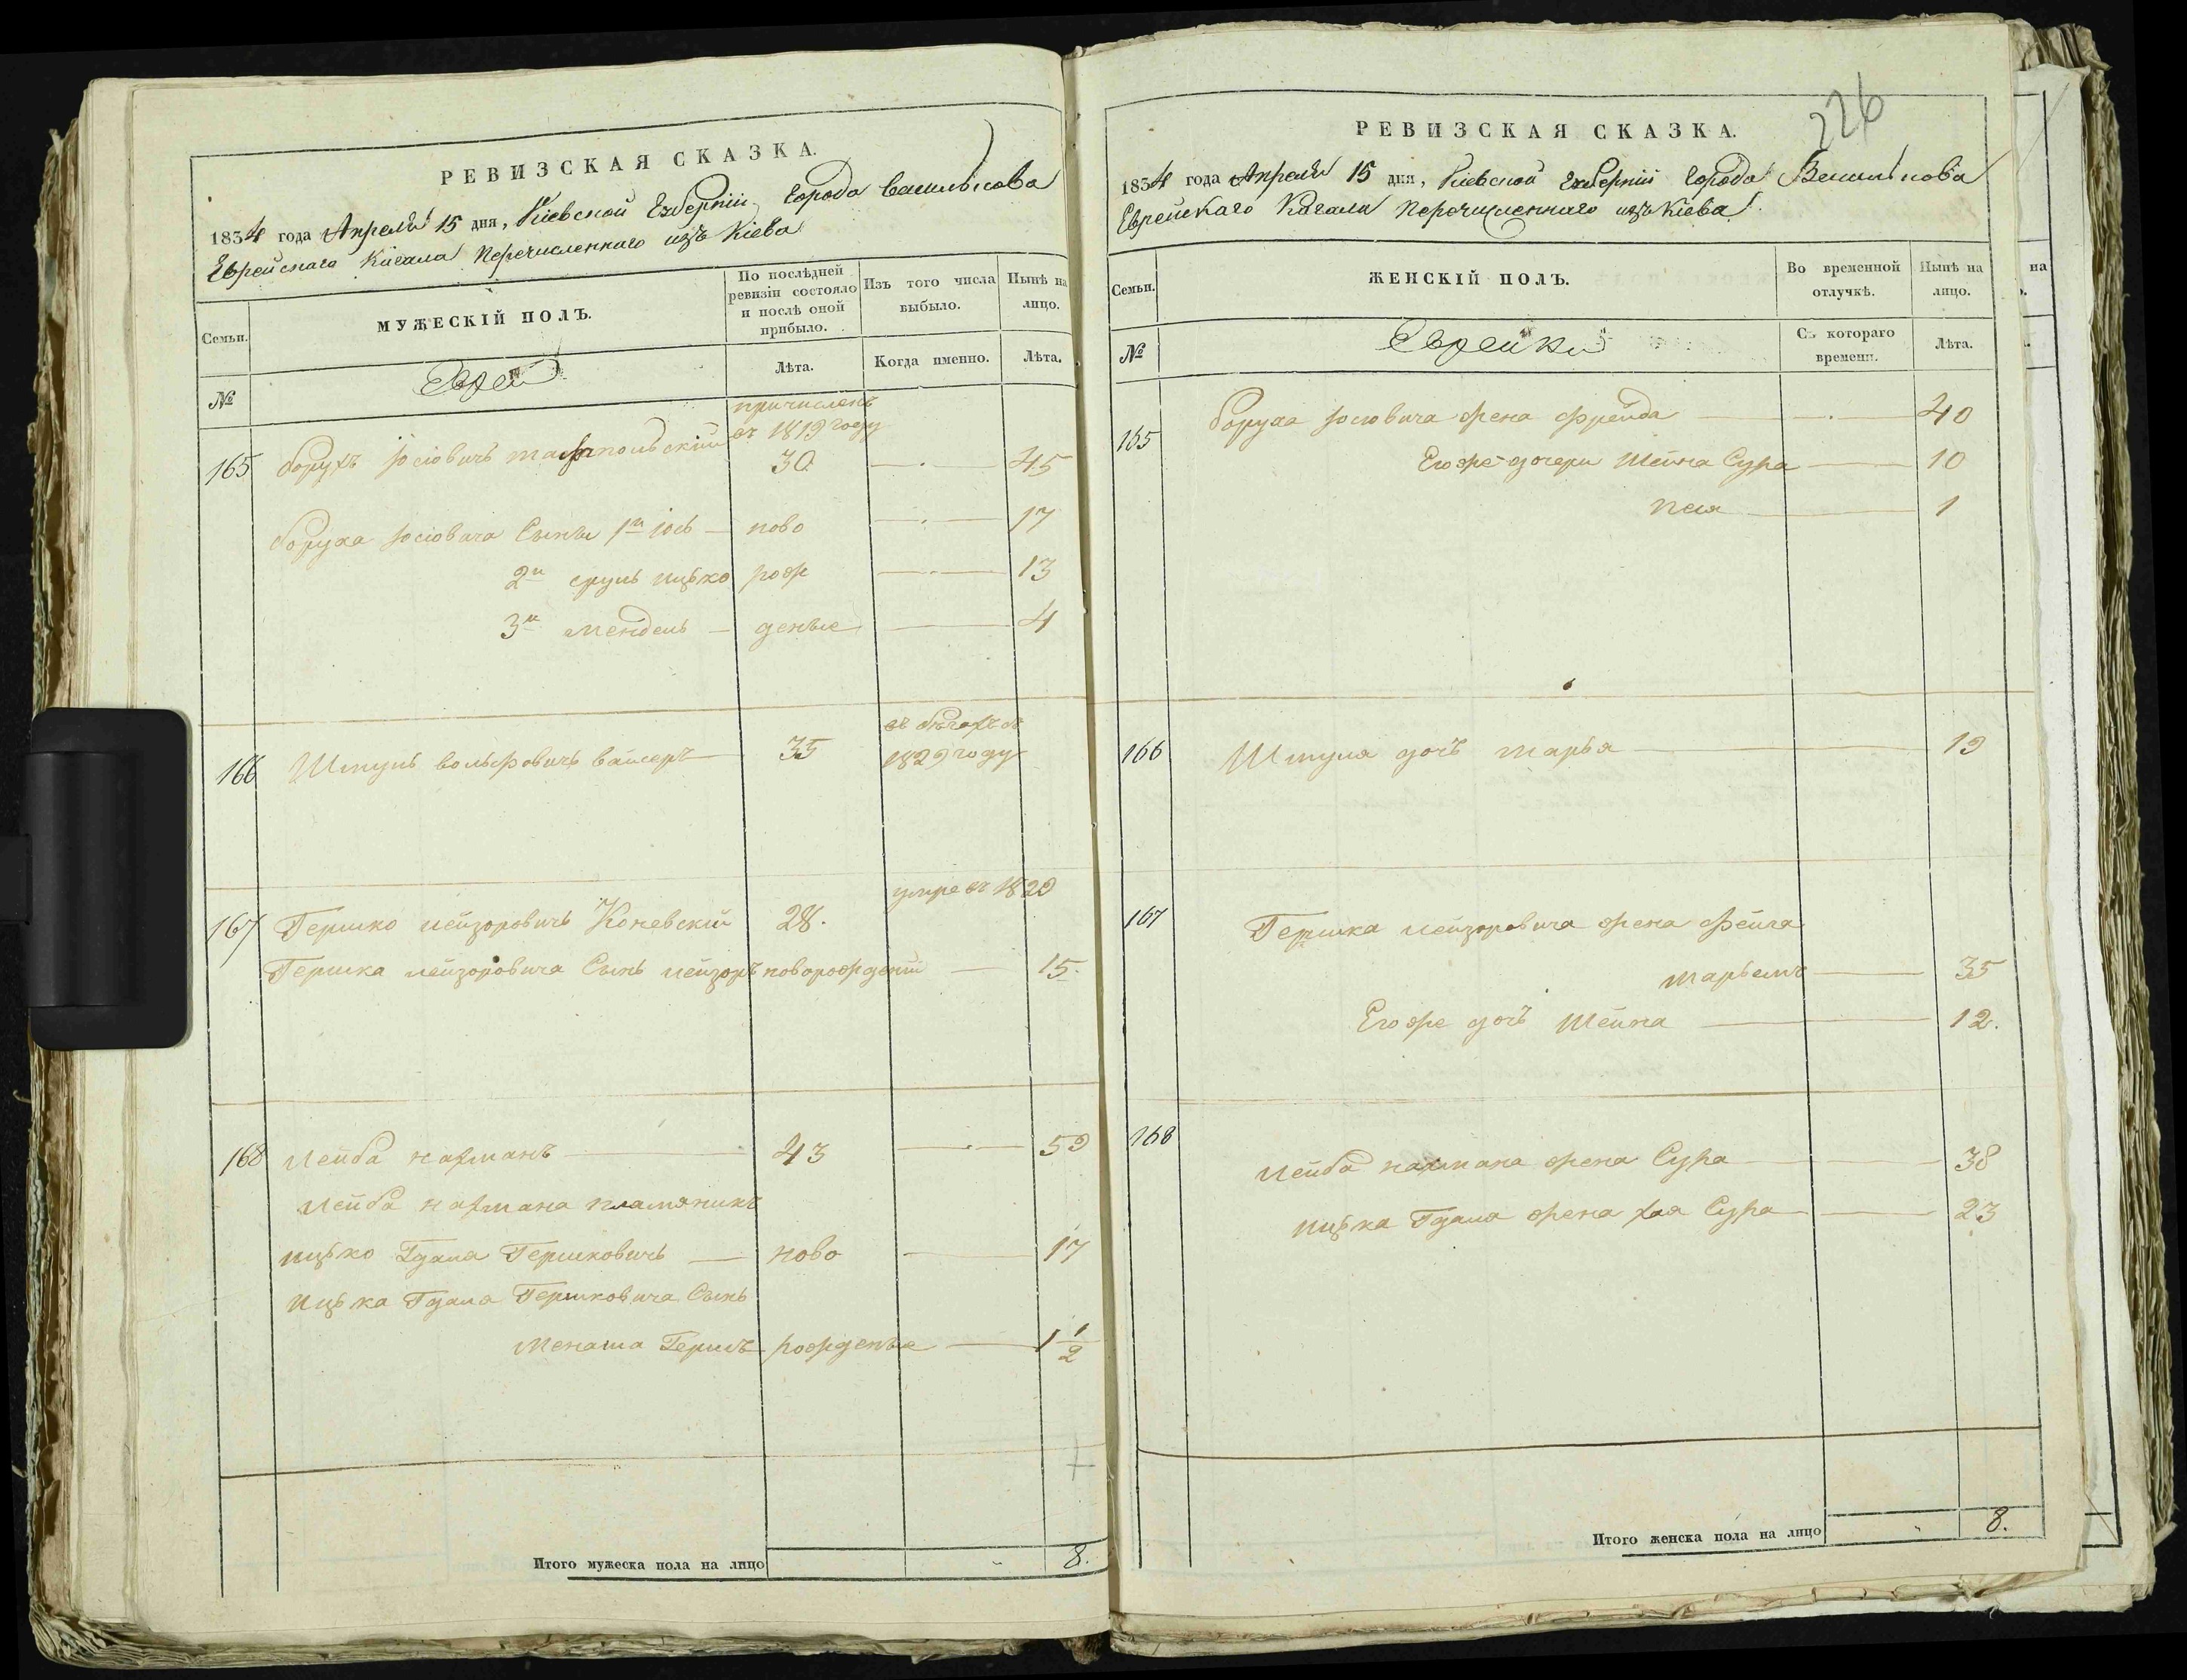 РЕВИЗСКАЯ СКАЗКА.
1834 года Апреля 15 дня, Кіевской Губерніи, Города Василькова
Еврейскаго Кагала перечисленнаго изъ Кіева
Семьи.
МУЖЕСКІЙ ПОЛЪ.
По послѣдней ревизіи состояло и послѣ оной прибыло.
Изъ того числа выбыло.
Нынѣ на лицо.
№
Евреи
Лѣта.
Когда именно.
Лѣта.
причисленъ
въ 1819 году
165 борухъ іосіовичъ 30 45
боруха іосіовича Сыны 1й іось ново 17
2й сруль ицько рож 13
3й мендель деные 4
въ бѣгахъ съ
166 Шмуль вольфовичъ вайсеръ 35 1829 году
умре въ 1829
167 Гершко лейзоровичъ Коневскій 28.
Гершка лейзоровича Сынъ лейзоръ новорожденій 15.
168 лейба нахманъ 43 59
лейба нахмана пламяникъ
ицько Гдаля Гершковичъ ново 17
ицька Гдаля Гершковича Сынъ
Менаша Гершъ рожденые 1 1/2
Итого мужеска пола на лицо 8.
226
РЕВИЗСКАЯ СКАЗКА.
1834 года Апреля 15 дня, Кіевской Губерніи Города Василькова
Еврейскаго Кагала перечисленнаго изъ Кіева
Семьи.
ЖЕНСКІЙ ПОЛЪ.
Во временной отлучкѣ.
Нынѣ на лицо.
№
Еврейки
Съ котораго времени.
Лѣта.
165 боруха іосіовича жена фрейда 40
Его же дочери Шейна Сура 10
песя 1
166 Шмуля дочь марья 19
167 Гершка лейзоровича жена фейга
марьемъ 35
Его же дочь Шейна 12.
168
лейба нахмана жена Сура 38
ицька Гдаля жена хая Сура 23
Итого женска пола на лицо 8.
на